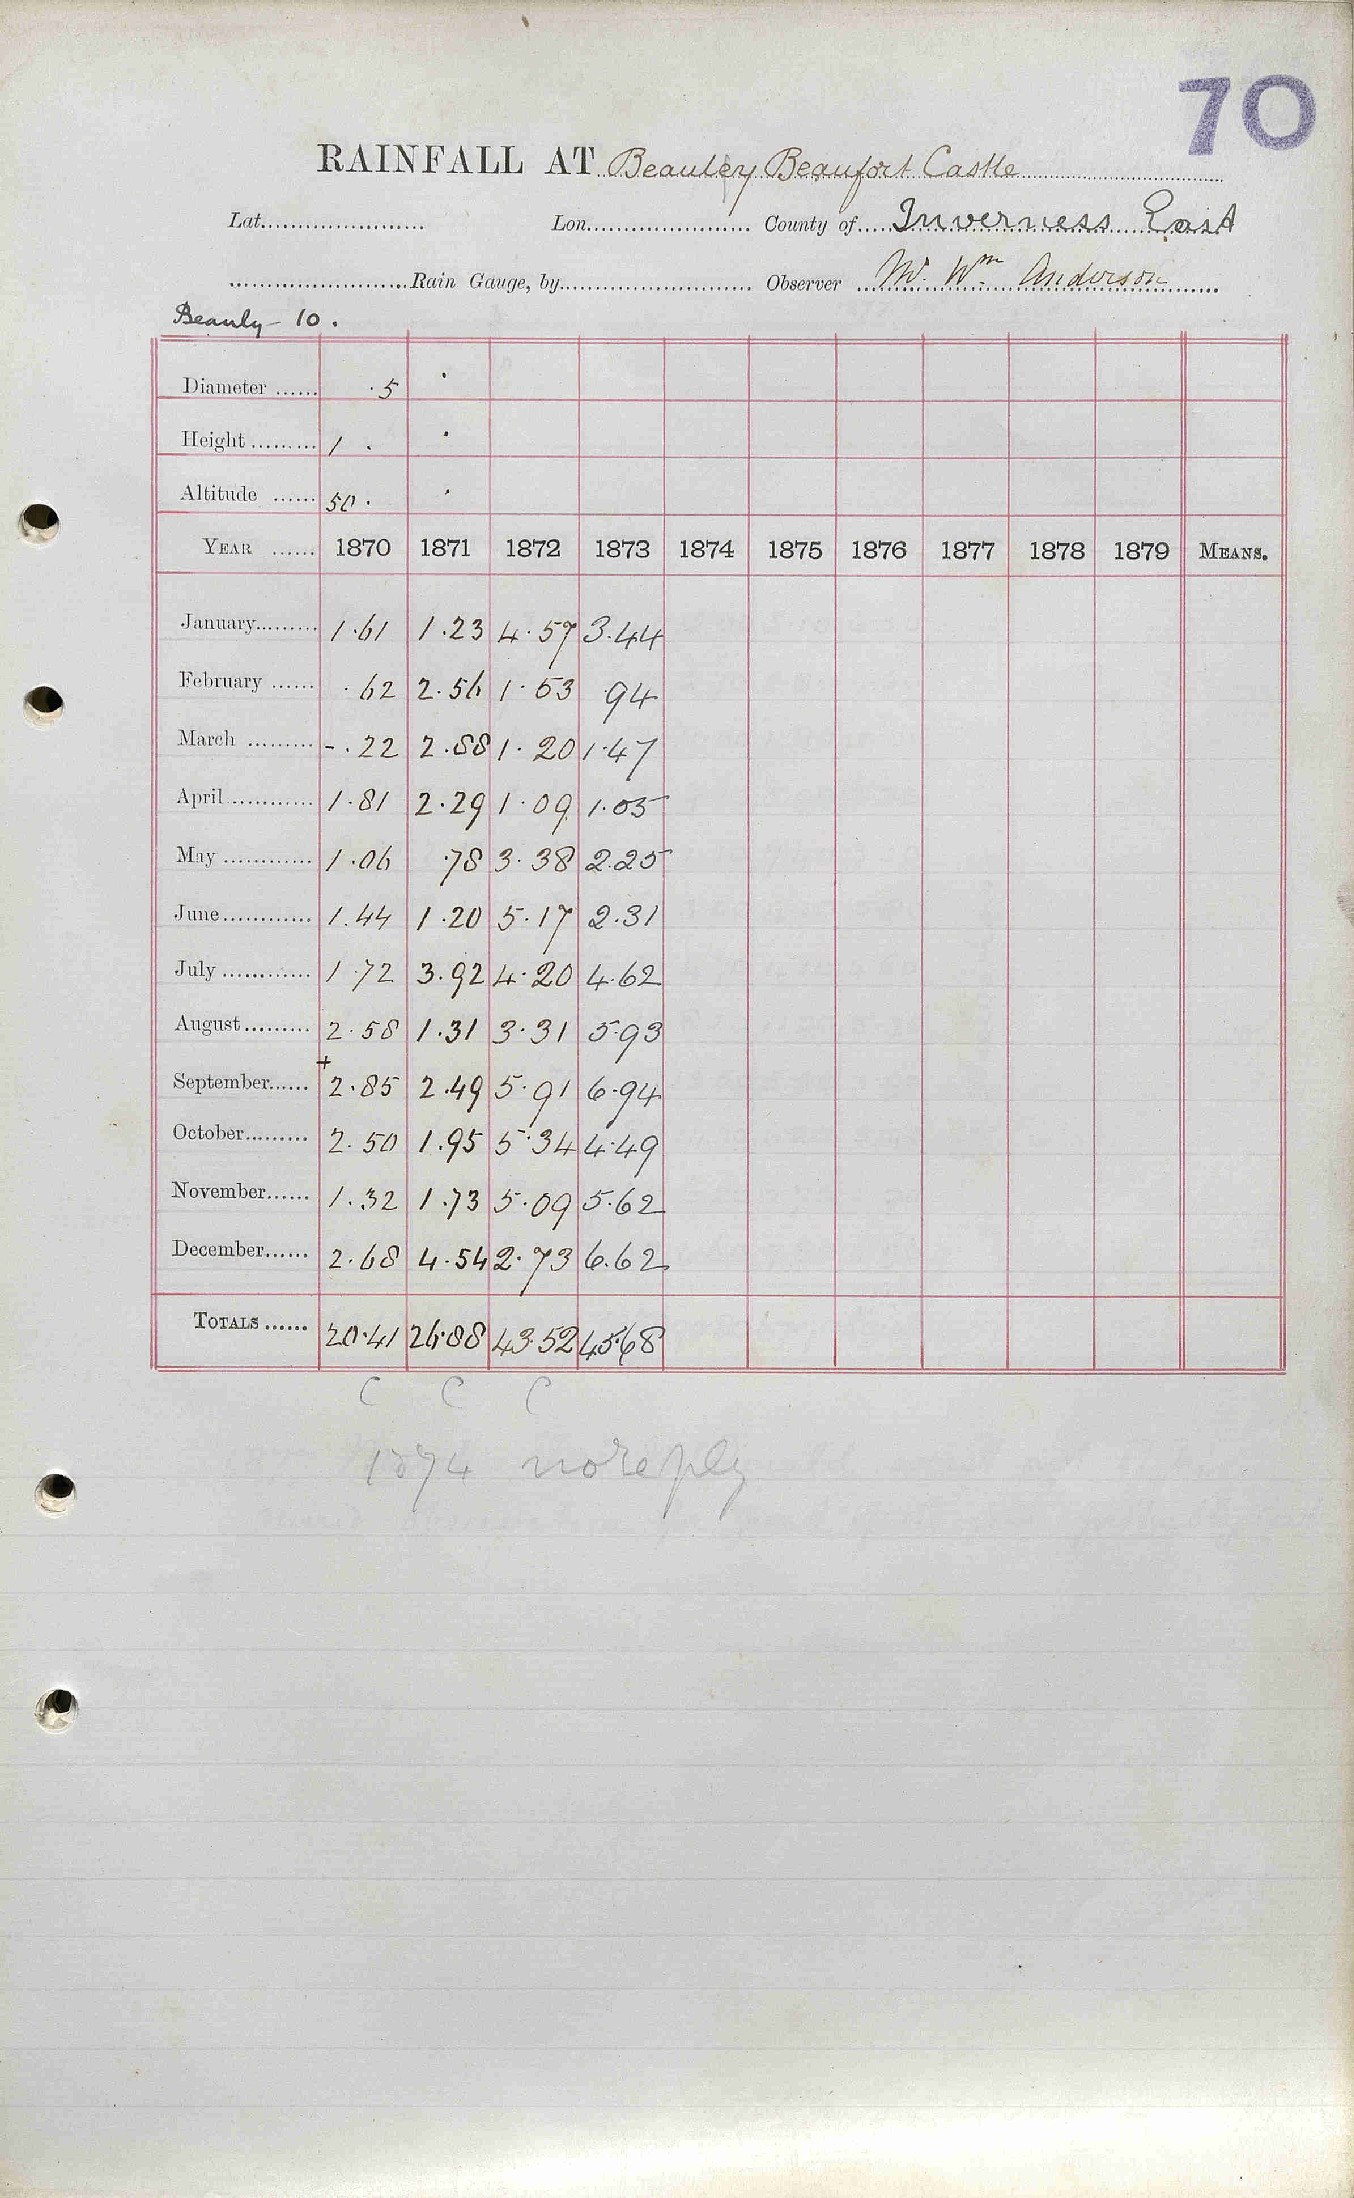 70
RAINFALL AT Beauley Beaufort Castle
Lat. Lon. County of Inverness East
Rain Gauge, by Observer Mr. Wm Anderson
Beauly 10.
Diameter ...... .5
Height ......... 1 .
Altitude ...... 50 .
YEAR ...... 1870 1871 1872 1873 1874 1875 1876 1877 1878 1879 MEANS.
January......... 1.61 1.23 4.57 3.44
February ...... .62 2.56 1.53 .94
March ......... - .22 2.88 1.20 1.47
April ............ 1.81 2.29 1.09 1.05
May ............. 1.06 .78 3.38 2.25
June............. 1.44 1.20 5.17 2.31
July ............. 1.72 3.92 4.20 4.62
August......... 2.58 1.31 3.31 5.93
September...... +2.85 2.49 5.91 6.94
October......... 2.50 1.95 5.34 4.49
November...... 1.32 1.73 5.09 5.62
December...... 2.68 4.54 2.73 6.62
TOTALS ...... 20.41 26.88 43.52 45.68
C C C
1874 no reply